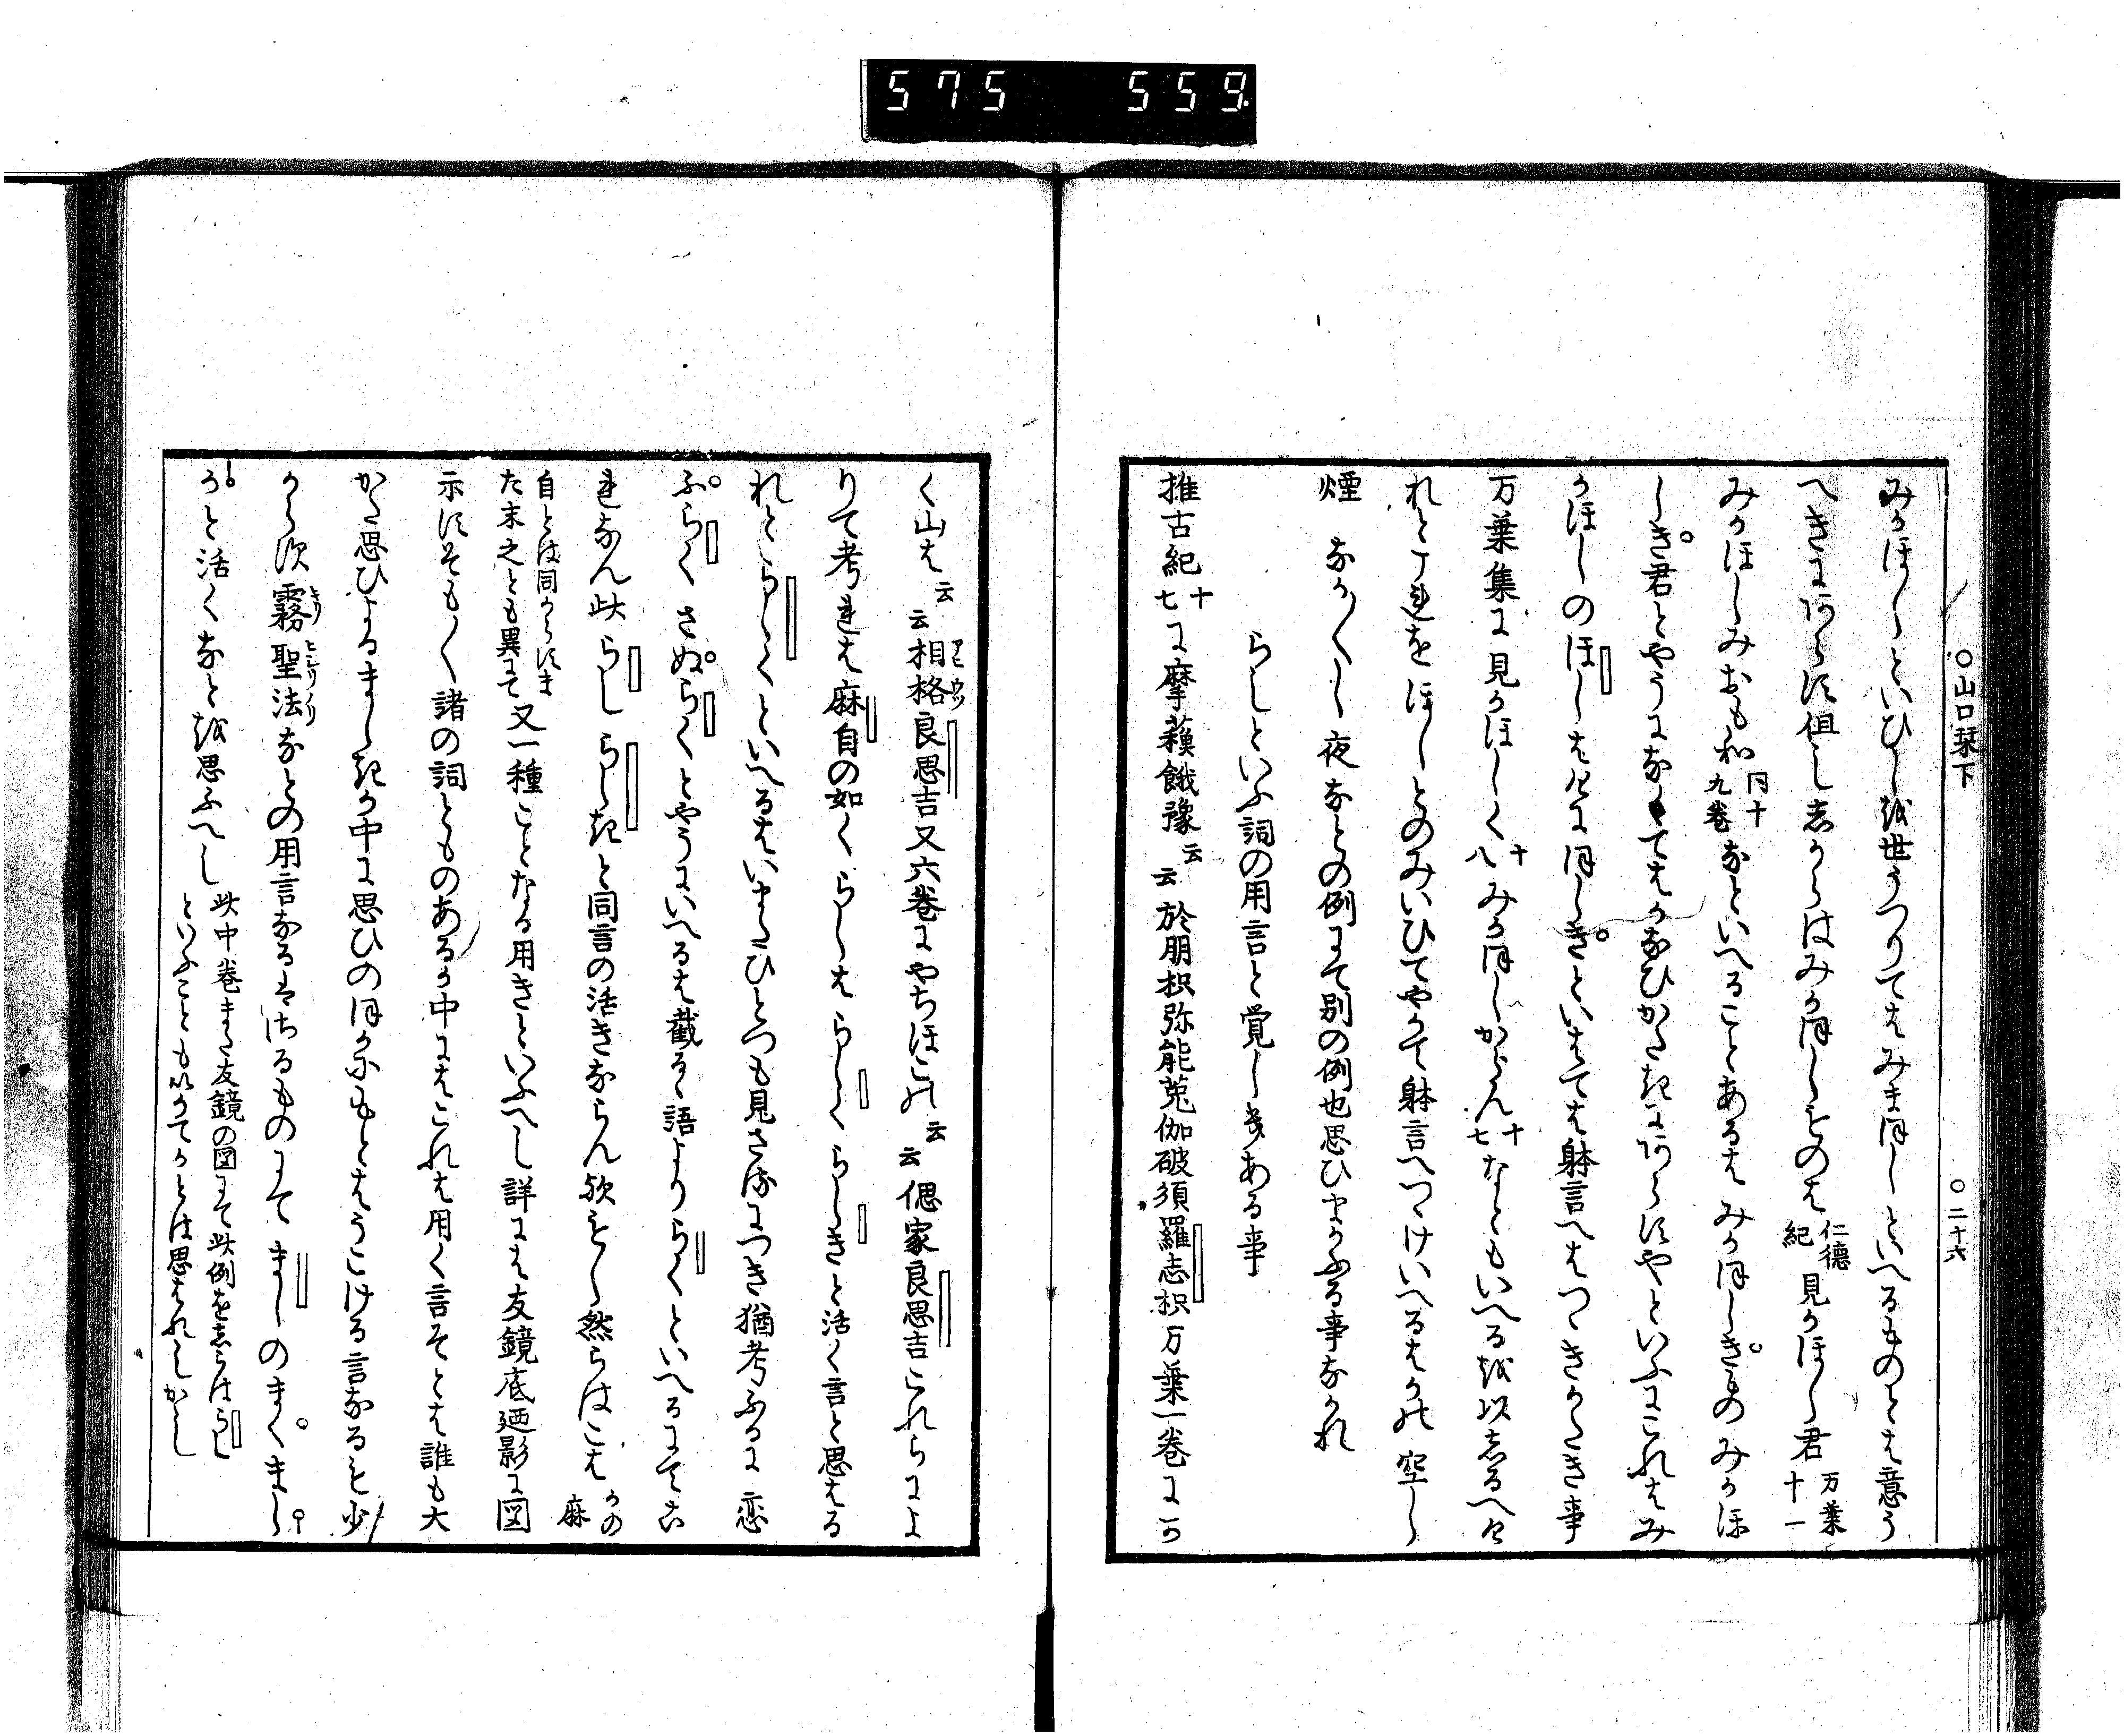 575 559
○山口栞下 ○二十六
みかほしといひしを世うつりてはみまほしといへるものとは意う
へきにあらす但ししからはみかほしものは仁徳紀見かほし君万葉十一
みかほしみおもわ同十九巻なといへることあるはみかほしきものみかほ
しき君とやうになくてはかなひかたきにあらすやといふにこれはみ
かほしのほしはけにほしきといはては躰言へはつゝきかたき事
万葉集に見かほしく十八みかほしからん十七なともいへるを以しるへけ
れとこれをほしとのみいひてやかて躰言へつゝけいへるはかの空し
煙なか〳〵し夜なとの例にて別の例也思ひまかふる事なかれ
らしといふ詞の用言と覚しきある事
推古紀十七に摩蘓餓豫云云於朋枳弥能菟伽破須羅志枳万葉一巻にか
く山は云云相格良思吉又六巻にやちほこの云云偲家良思吉これらによ
りて考れは麻自の如くらしはらしくらしきと活く言と思はる
れとらしくといへるはいまたひとつも見さるにつき猶考ふるに恋
ふらくさぬらくとやうにいへるは截るゝ語よりらくといへるにてこ
れなん此らしらしきと同言の活きならん歟もし然らはこはかの麻
自とは同からすまた末之とも異にて又一種ことなる用きといふへし詳には友鏡底廼影に図
示すそも〳〵諸の詞とものあるか中にはこれは用く言そとは誰も大
かた思ひよるましきか中に思ひのほかにもとはうこける言なるも少
からす霧聖法なとの用言なるはさるものにてましのまくまし
かと活くなとを思ふへし此中巻また友鏡の図にて此例をしらはらしといふこともいかてかとは思はれしかし